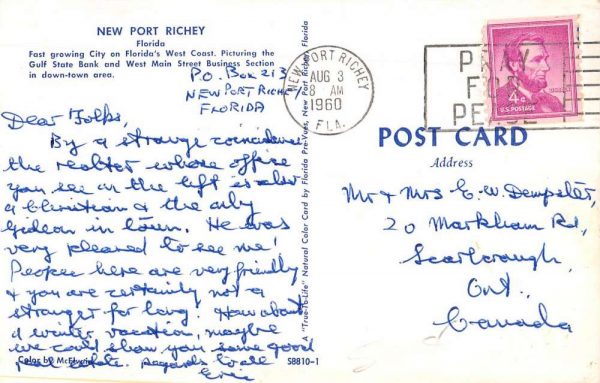 NEW PORT RICHEY
Florida
Fast growing City on Florida's West Coast. Picturing the
Gulf State Bank and West Main Street Business Section
in down-town area.
P.O. Box 213
NEW PORT RICHEY
FLORIDA
Dear Folks,
By a strange coincidence
the realtor whose office
you see on the left is also
a Christian & the only
Gideon in town. He was
very pleased to see me!
People here are very friendly
& you are certainly not a
stranger for long! How about
a winter vacation, maybe
we could show you some good
real estate. Regards to all
Eric
Color by McElwain
S8810-1
A "True-To-Life" Natural Color Card by Florida Pre-Vues, New Port Richey, Florida
NEW PORT RICHEY
AUG 3
8 AM
1960
FLA.
PRAY
FOR
PEACE
U.S. POSTAGE
POST CARD
Address
Mr & Mrs E.W. Dempster,
20 Markham Rd,
Scarborough,
Ont,
Canada